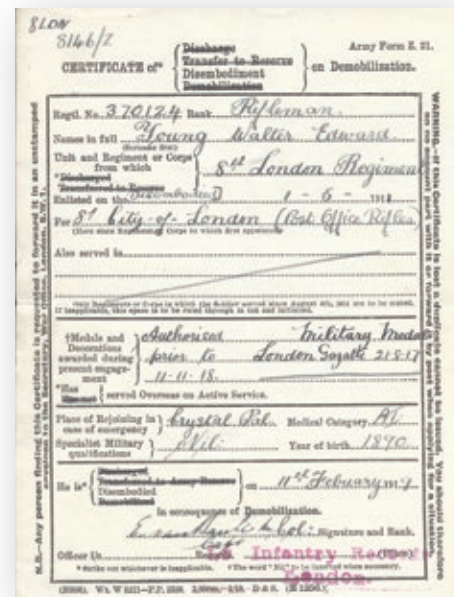 8 LON
8146/Z
Army Form Z. 21.
CERTIFICATE of*
Discharge
Transfer to Reserve
Disembodiment
Demobilization
on Demobilization.
Regtl. No. 370124 Rank Rifleman.
Names in full Young Walter Edward
(Surname first)
Unit and Regiment or Corps from which
*Discharged
Transferred to Reserve
Disembodied
8th London Regiment
Enlisted on the 1-6-191
For 8th City-of-London (Post Office Rifles)
(Here state Regiment or Corps to which first appointed)
Also served in
Only Regiments or Corps in which the Soldier served since August 4th, 1914 are to be stated.
If inapplicable, this space is to be ruled through in ink and initialled.
†Medals and Decorations awarded during present engagement
Authorised Military Medal
prior to London Gazette 21-8-17
11-11-18.
*Has
Has not
served Overseas on Active Service.
Place of Rejoining in case of emergency Crystal Pal. Medical Category A1
Specialist Military qualifications Nil Year of birth 1890
He is*
Discharged
Transferred to Army Reserve
Disembodied
Demobilized
on 11th February
in consequence of Demobilization.
Col: Signature and Rank.
Officer i/c Infantry Records
London.
*Strike out whichever is inapplicable. †The word "Nil" to be inserted when necessary.
N.B.—Any person finding this Certificate is requested to forward it in an unstamped envelope to the Secretary, War Office, London, S.W.1.
WARNING.—If this Certificate is lost a duplicate cannot be issued. You should therefore on no account part with it or forward it by post when applying for a situation.